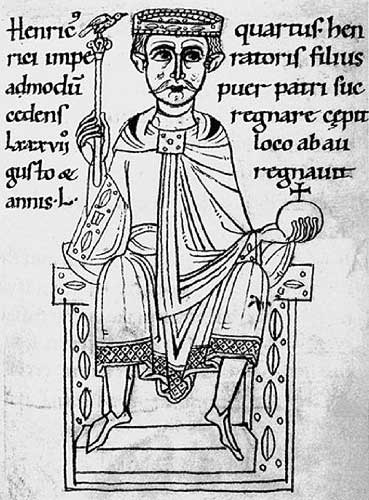 Henricꝰ quartus· hen
rici impe ratoris filius
admodū puer patri suc
cedens regnare cępit
lxxxvijº loco ab au
gusto & regnauit
annis· L·